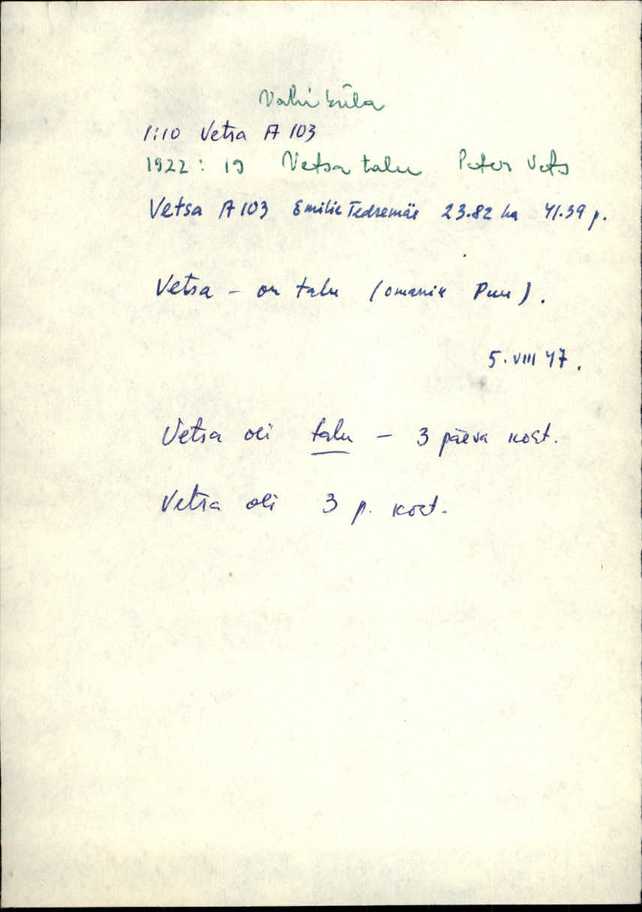 Vahi küla
1:10 Vetsa A 103
1922: 19 Vetsa talu Peter Vets
Vetsa A 103 Emilie Tedremäe 23.82 ha 41.39 p.
Vetsa – on talu (omanik Puu).
5. VIII 47.
Vetsa oli talu – 3 päeva koht.
Vetsa oli 3 p. koht.